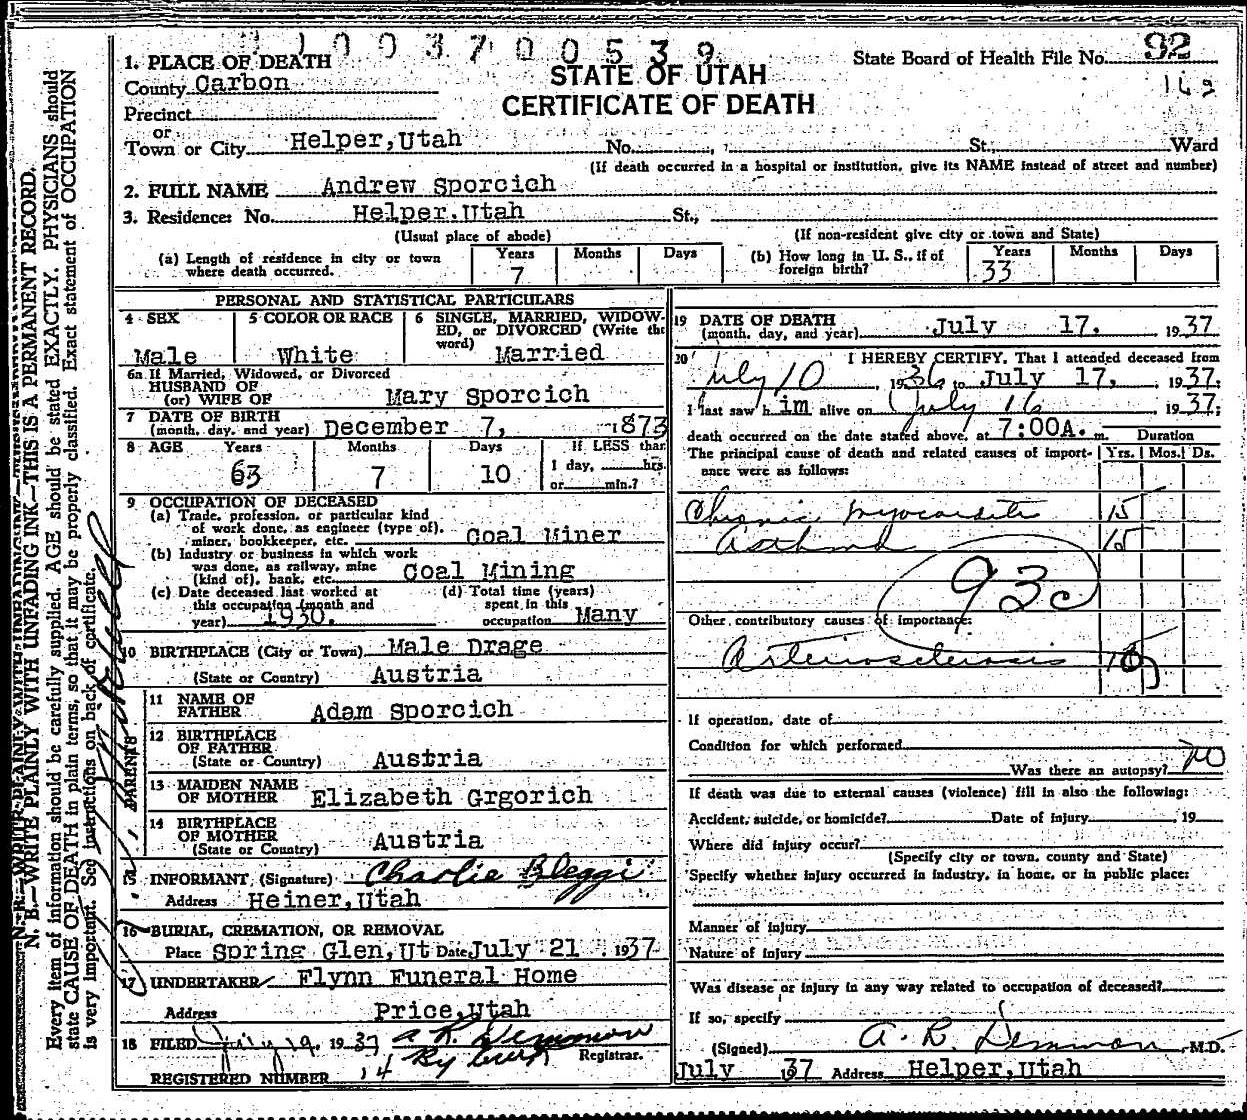 1003700539
State Board of Health File No. 92
168
1. PLACE OF DEATH
STATE OF UTAH
County Carbon
CERTIFICATE OF DEATH
Precinct
or
Town or City Helper, Utah No. St. Ward
(If death occurred in a hospital or institution, give its NAME instead of street and number)
2. FULL NAME Andrew Sporcich
3. Residence: No. Helper, Utah St.,
(Usual place of abode) (If non-resident give city or town and State)
(a) Length of residence in city or town where death occurred. Years 7 Months Days
(b) How long in U. S., if of foreign birth? Years 33 Months Days
PERSONAL AND STATISTICAL PARTICULARS
4 SEX Male
5 COLOR OR RACE White
6 SINGLE, MARRIED, WIDOWED, or DIVORCED (Write the word) Married
6a If Married, Widowed, or Divorced
HUSBAND OF
(or) WIFE OF Mary Sporcich
7 DATE OF BIRTH
(month, day, and year) December 7, 1873
8 AGE Years 63 Months 7 Days 10 If LESS than 1 day, hrs. or min.?
9 OCCUPATION OF DECEASED
(a) Trade, profession, or particular kind
of work done, as engineer (type of),
miner, bookkeeper, etc. Coal Miner
(b) Industry or business in which work
was done, as railway, mine
(kind of), bank, etc. Coal Mining
(c) Date deceased last worked at
this occupation (month and
year) 1930.
(d) Total time (years)
spent in this
occupation Many
10 BIRTHPLACE (City or Town) Male Drage
(State or Country) Austria
PARENTS
11 NAME OF
FATHER Adam Sporcich
12 BIRTHPLACE
OF FATHER
(State or Country) Austria
13 MAIDEN NAME
OF MOTHER Elizabeth Grgorich
14 BIRTHPLACE
OF MOTHER
(State or Country) Austria
15 INFORMANT (Signature) Charlie Bleggi
Address Heiner, Utah
16 BURIAL, CREMATION, OR REMOVAL
Place Spring Glen, Ut Date July 21 1937
17 UNDERTAKER Flynn Funeral Home
Address Price, Utah
18 FILED July 19, 1937 A R Demman
By Registrar.
REGISTERED NUMBER 14
19 DATE OF DEATH
(month, day, and year) July 17, 1937
20 I HEREBY CERTIFY, That I attended deceased from
July 10, 1936 to July 17, 1937;
I last saw him alive on July 16 1937;
death occurred on the date stated above, at 7:00A. m. Duration
The principal cause of death and related causes of importance were as follows: Yrs. Mos. Ds.
Chronic Myocarditis 15
Asthma 15
93c
Other contributory causes of importance:
Arteriosclerosis 15
If operation, date of
Condition for which performed
Was there an autopsy? no
If death was due to external causes (violence) fill in also the following:
Accident, suicide, or homicide? Date of injury , 19
Where did injury occur?
(Specify city or town, county and State)
Specify whether injury occurred in industry, in home, or in public place:
Manner of injury
Nature of injury
Was disease or injury in any way related to occupation of deceased?
If so, specify
(Signed) A. R. Demman , M.D.
July 1937 Address Helper, Utah
N. B.—WRITE PLAINLY WITH UNFADING INK—THIS IS A PERMANENT RECORD.
Every item of information should be carefully supplied. AGE should be stated EXACTLY. PHYSICIANS should
state CAUSE OF DEATH in plain terms, so that it may be properly classified. Exact statement of OCCUPATION
is very important. See instructions on back of certificate.